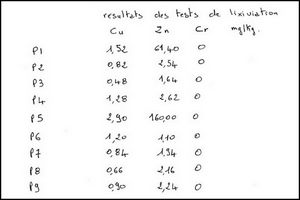 resultats des tests de lixiviation
Cu Zn Cr mg/kg.
P1 1,52 61,40 0
P2 0,82 2,54 0
P3 0,48 1,64 0
P4 1,28 2,62 0
P5 2,90 160,00 0
P6 1,20 1,10 0
P7 0,84 1,94 0
P8 0,66 2,16 0
P9 0,90 2,24 0